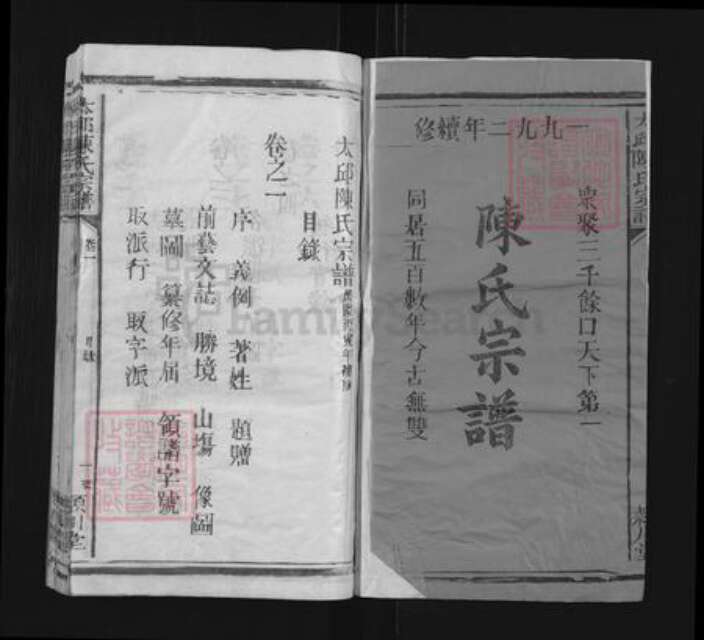 一九九二年續修
眾聚三千餘口天下第一
陳氏宗譜
同居五百數年今古無雙
太邱陳氏宗譜
太邱陳氏宗譜
目錄
卷之一
序 義例 著姓 題贈
前藝文誌 勝境 山塲 像圖
墓圖 纂修年屆 領譜字號
取派行 取字派
太邱陳氏宗譜
卷一
目錄
潁川堂
FamilySearch